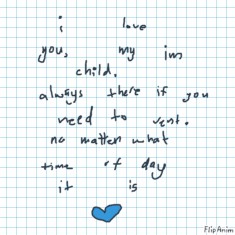 i love
you, my im
child.
always there if you
need to vent.
no matter what
time of day
it is
FlipAnim